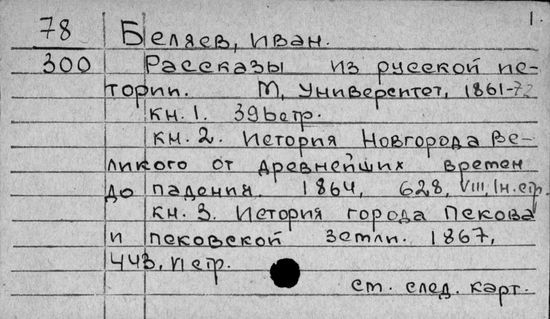 1.
78 Беляев, Иван.
300 Рассказы из русской ис-
тории. М, Университет, 1861-72
кн. 1. 396стр.
кн. 2. История Новгорода Ве-
ликого от древнейших времен
до падения. 1864, 628, VIII, Iн.стр.
кн. 3. История города Пскова
и псковской земли. 1867,
443, II стр.
ст. след. карт.